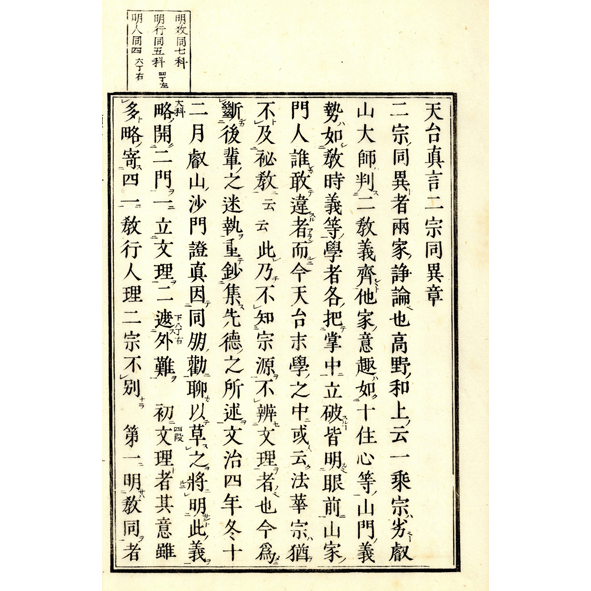 明教同七科
明行同五科
明人同四六丁右
天台真言二宗同異章
二宗同異者兩家諍論也高野和上云一乘宗劣叡
山大師判二教義齊他家意趣如十住心等山門義
勢如教時義等學者各把掌中立破皆明眼前山家
門人誰敢違者而今天台末學之中或云法華宗猶
不及祕教云云此乃不知宗源不辨文理者也今爲
斷後輩之迷執重鈔集先德之所述文治四年冬十
二月叡山沙門證真因同朋勸聊以草之將明此義
大科
略開二門一立文理二遮外難初文理者其意雖
多略寄四一教行人理二宗不別第一明教同者
四段